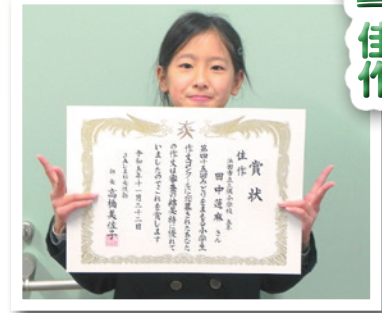 佳作
賞状
佳作
小学校 五年
田中 蓮麻 さん
第四十五回みどりを小学生
作文コンクールに応募されたあなた
の作文は審査の結果特に優れて
いましたのでこれを賞します
令和五年十一月二十二日
高橋美佳子